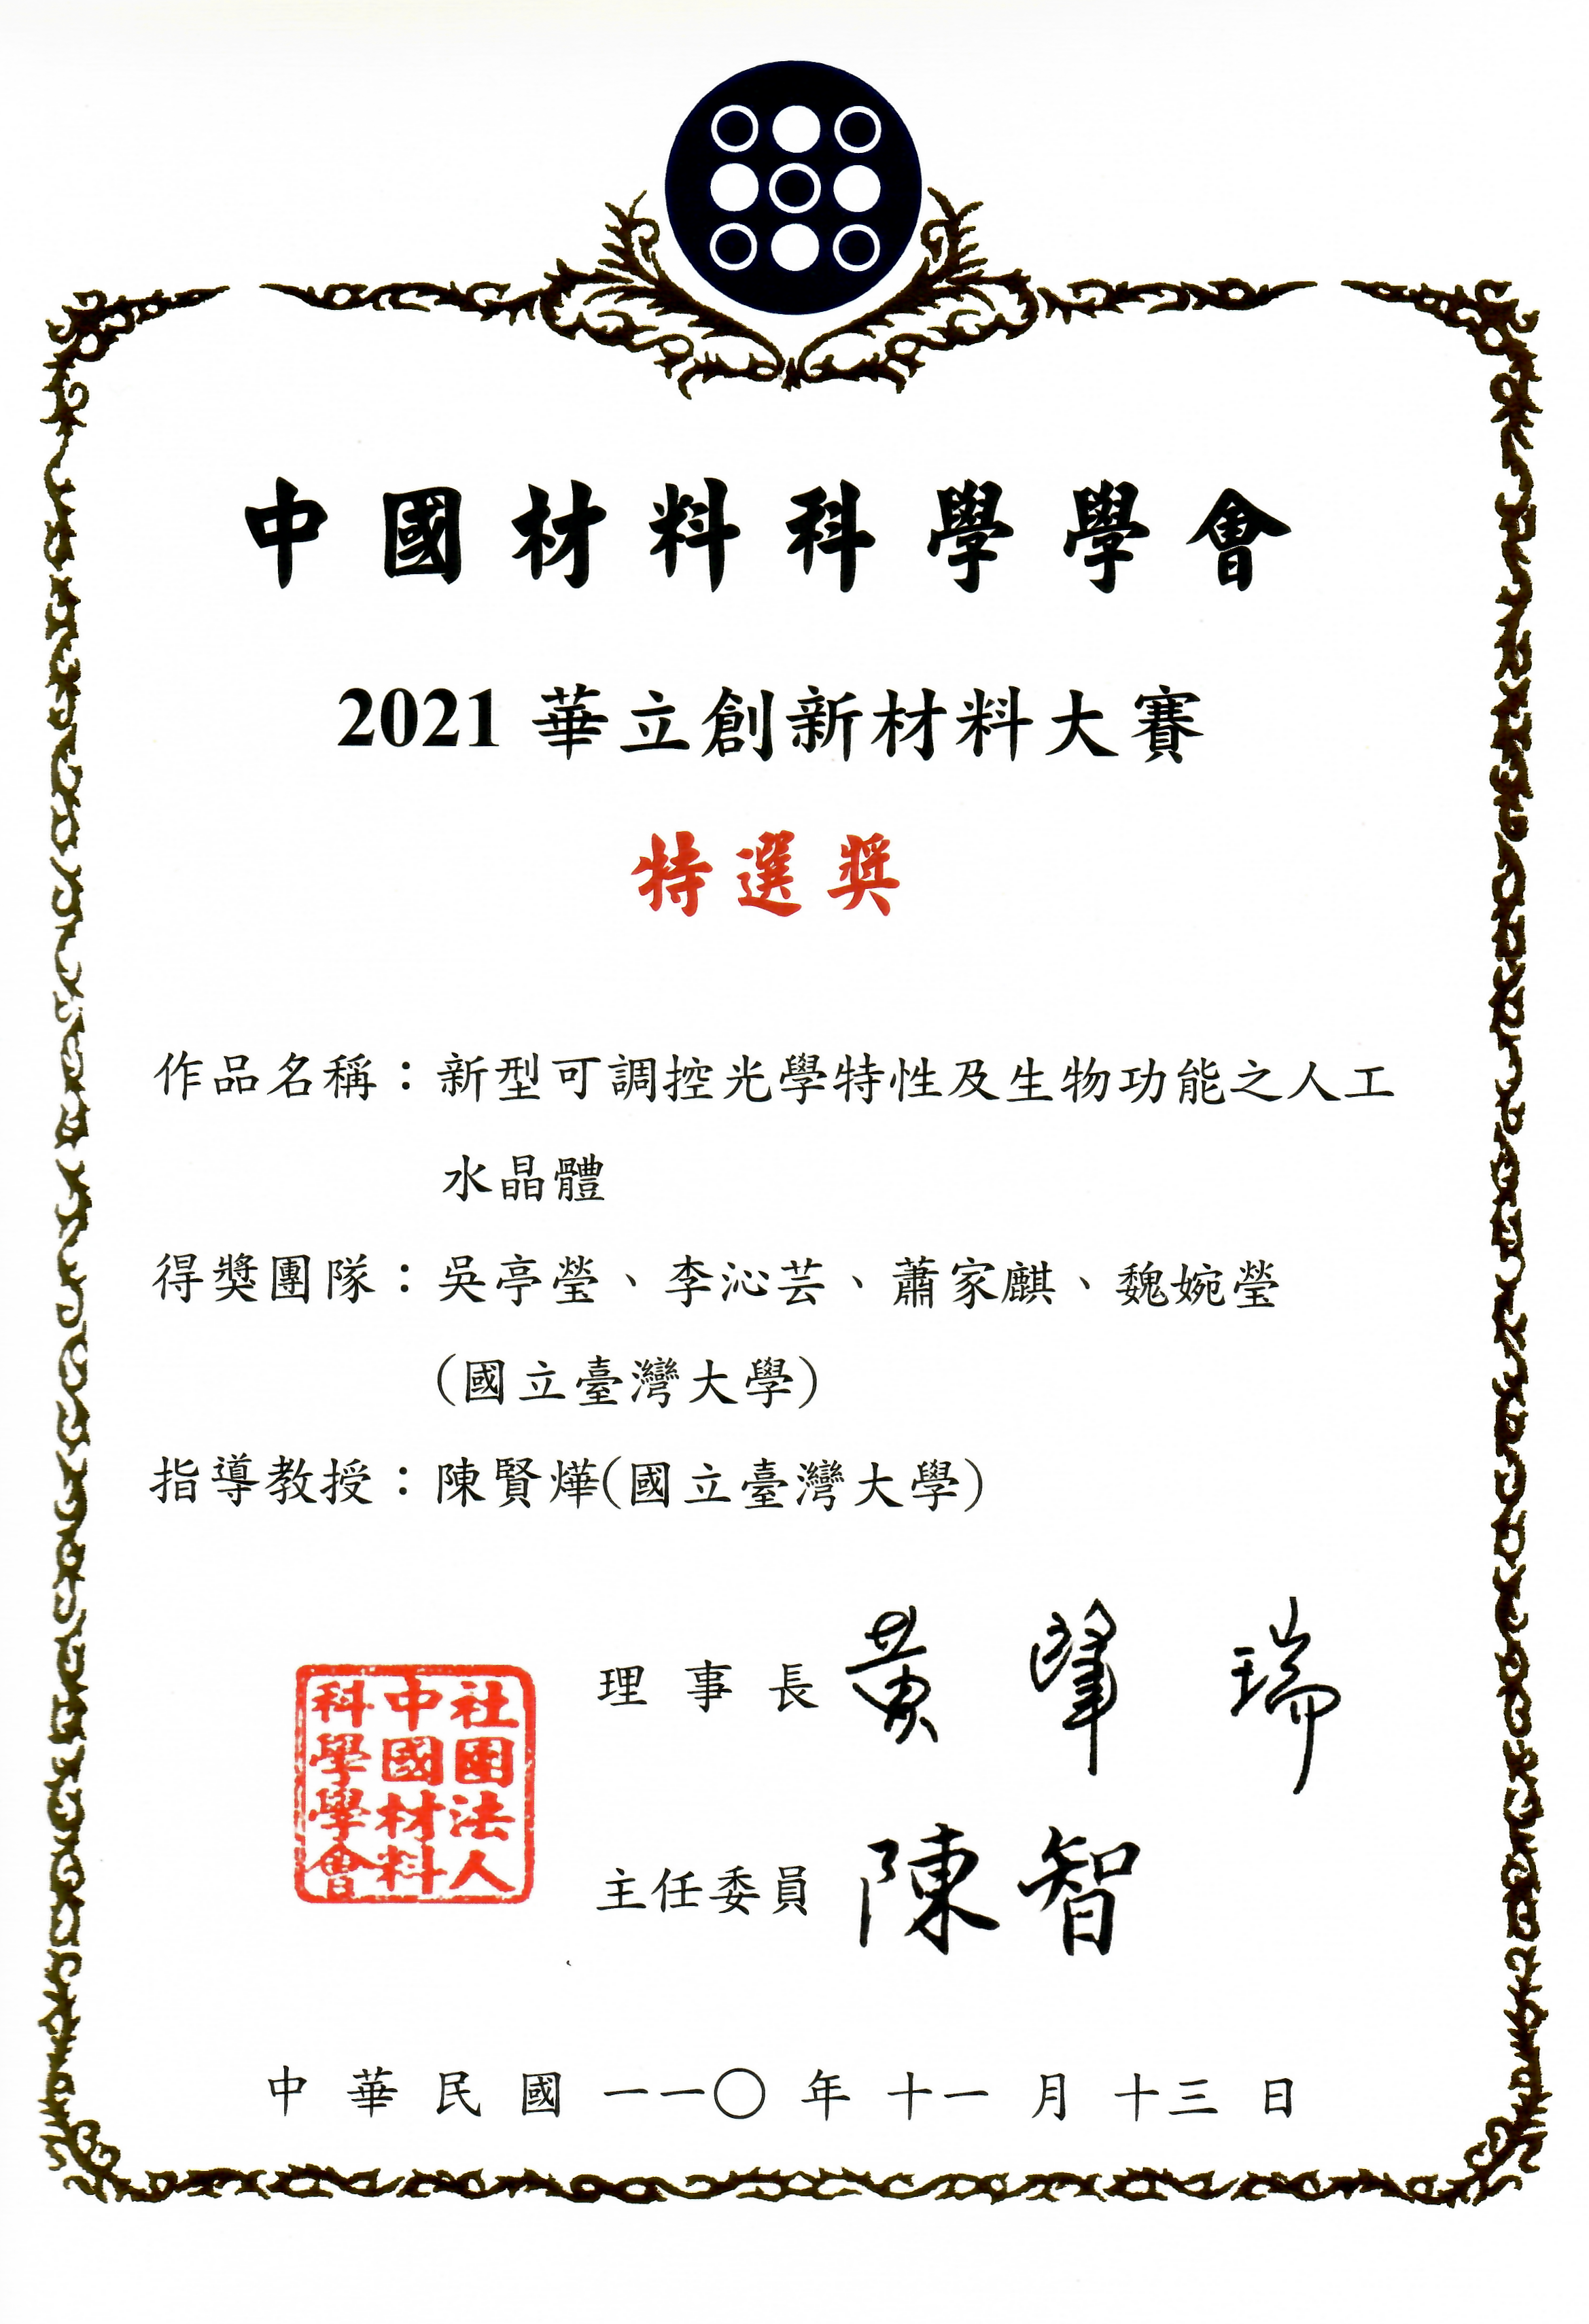 中國材料科學學會
2021 華立創新材料大賽
特選獎
作品名稱：新型可調控光學特性及生物功能之人工
水晶體
得獎團隊：吳亭瑩、李沁芸、蕭家麒、魏婉瑩
(國立臺灣大學)
指導教授：陳賢燁(國立臺灣大學)
理事長 黃肇瑞
社團法人
中國材料
科學學會
主任委員 陳智
中華民國一一〇年十一月十三日